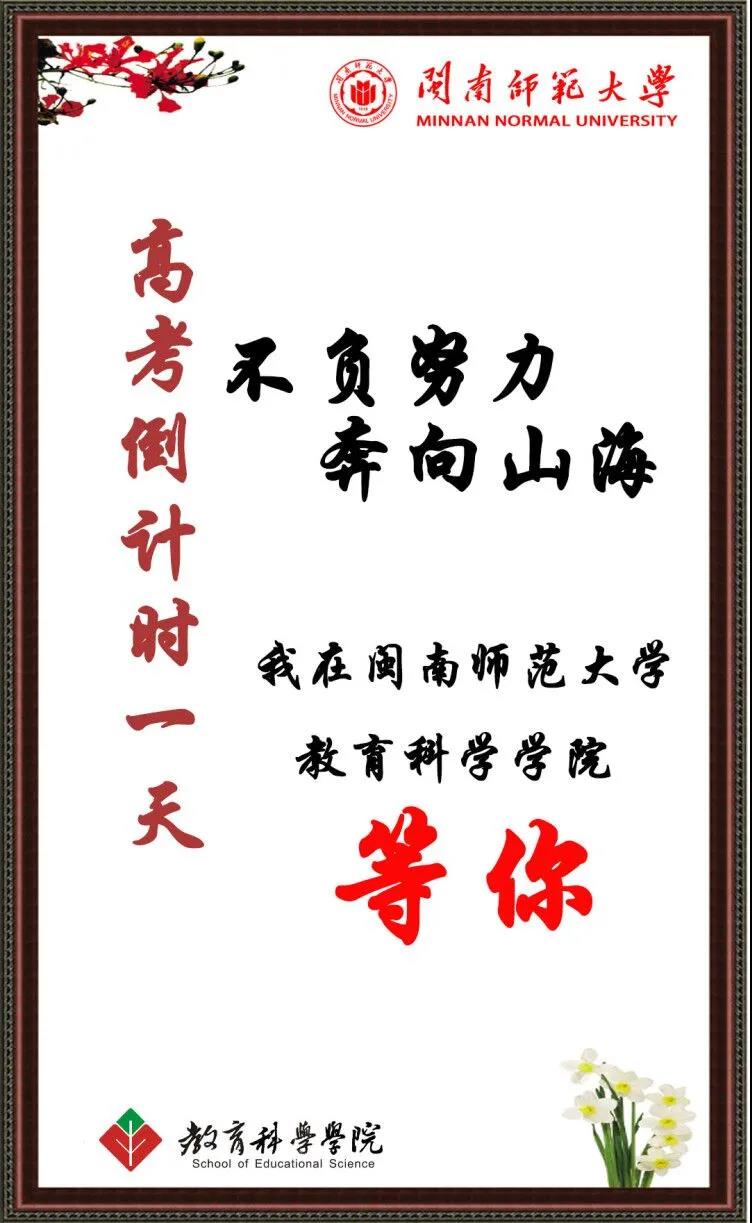 閩南師範大學
MINNAN NORMAL UNIVERSITY
高考倒计时一天
不负努力
奔向山海
我在闽南师范大学
教育科学学院
等你
教育科學學院
School of Educational Science